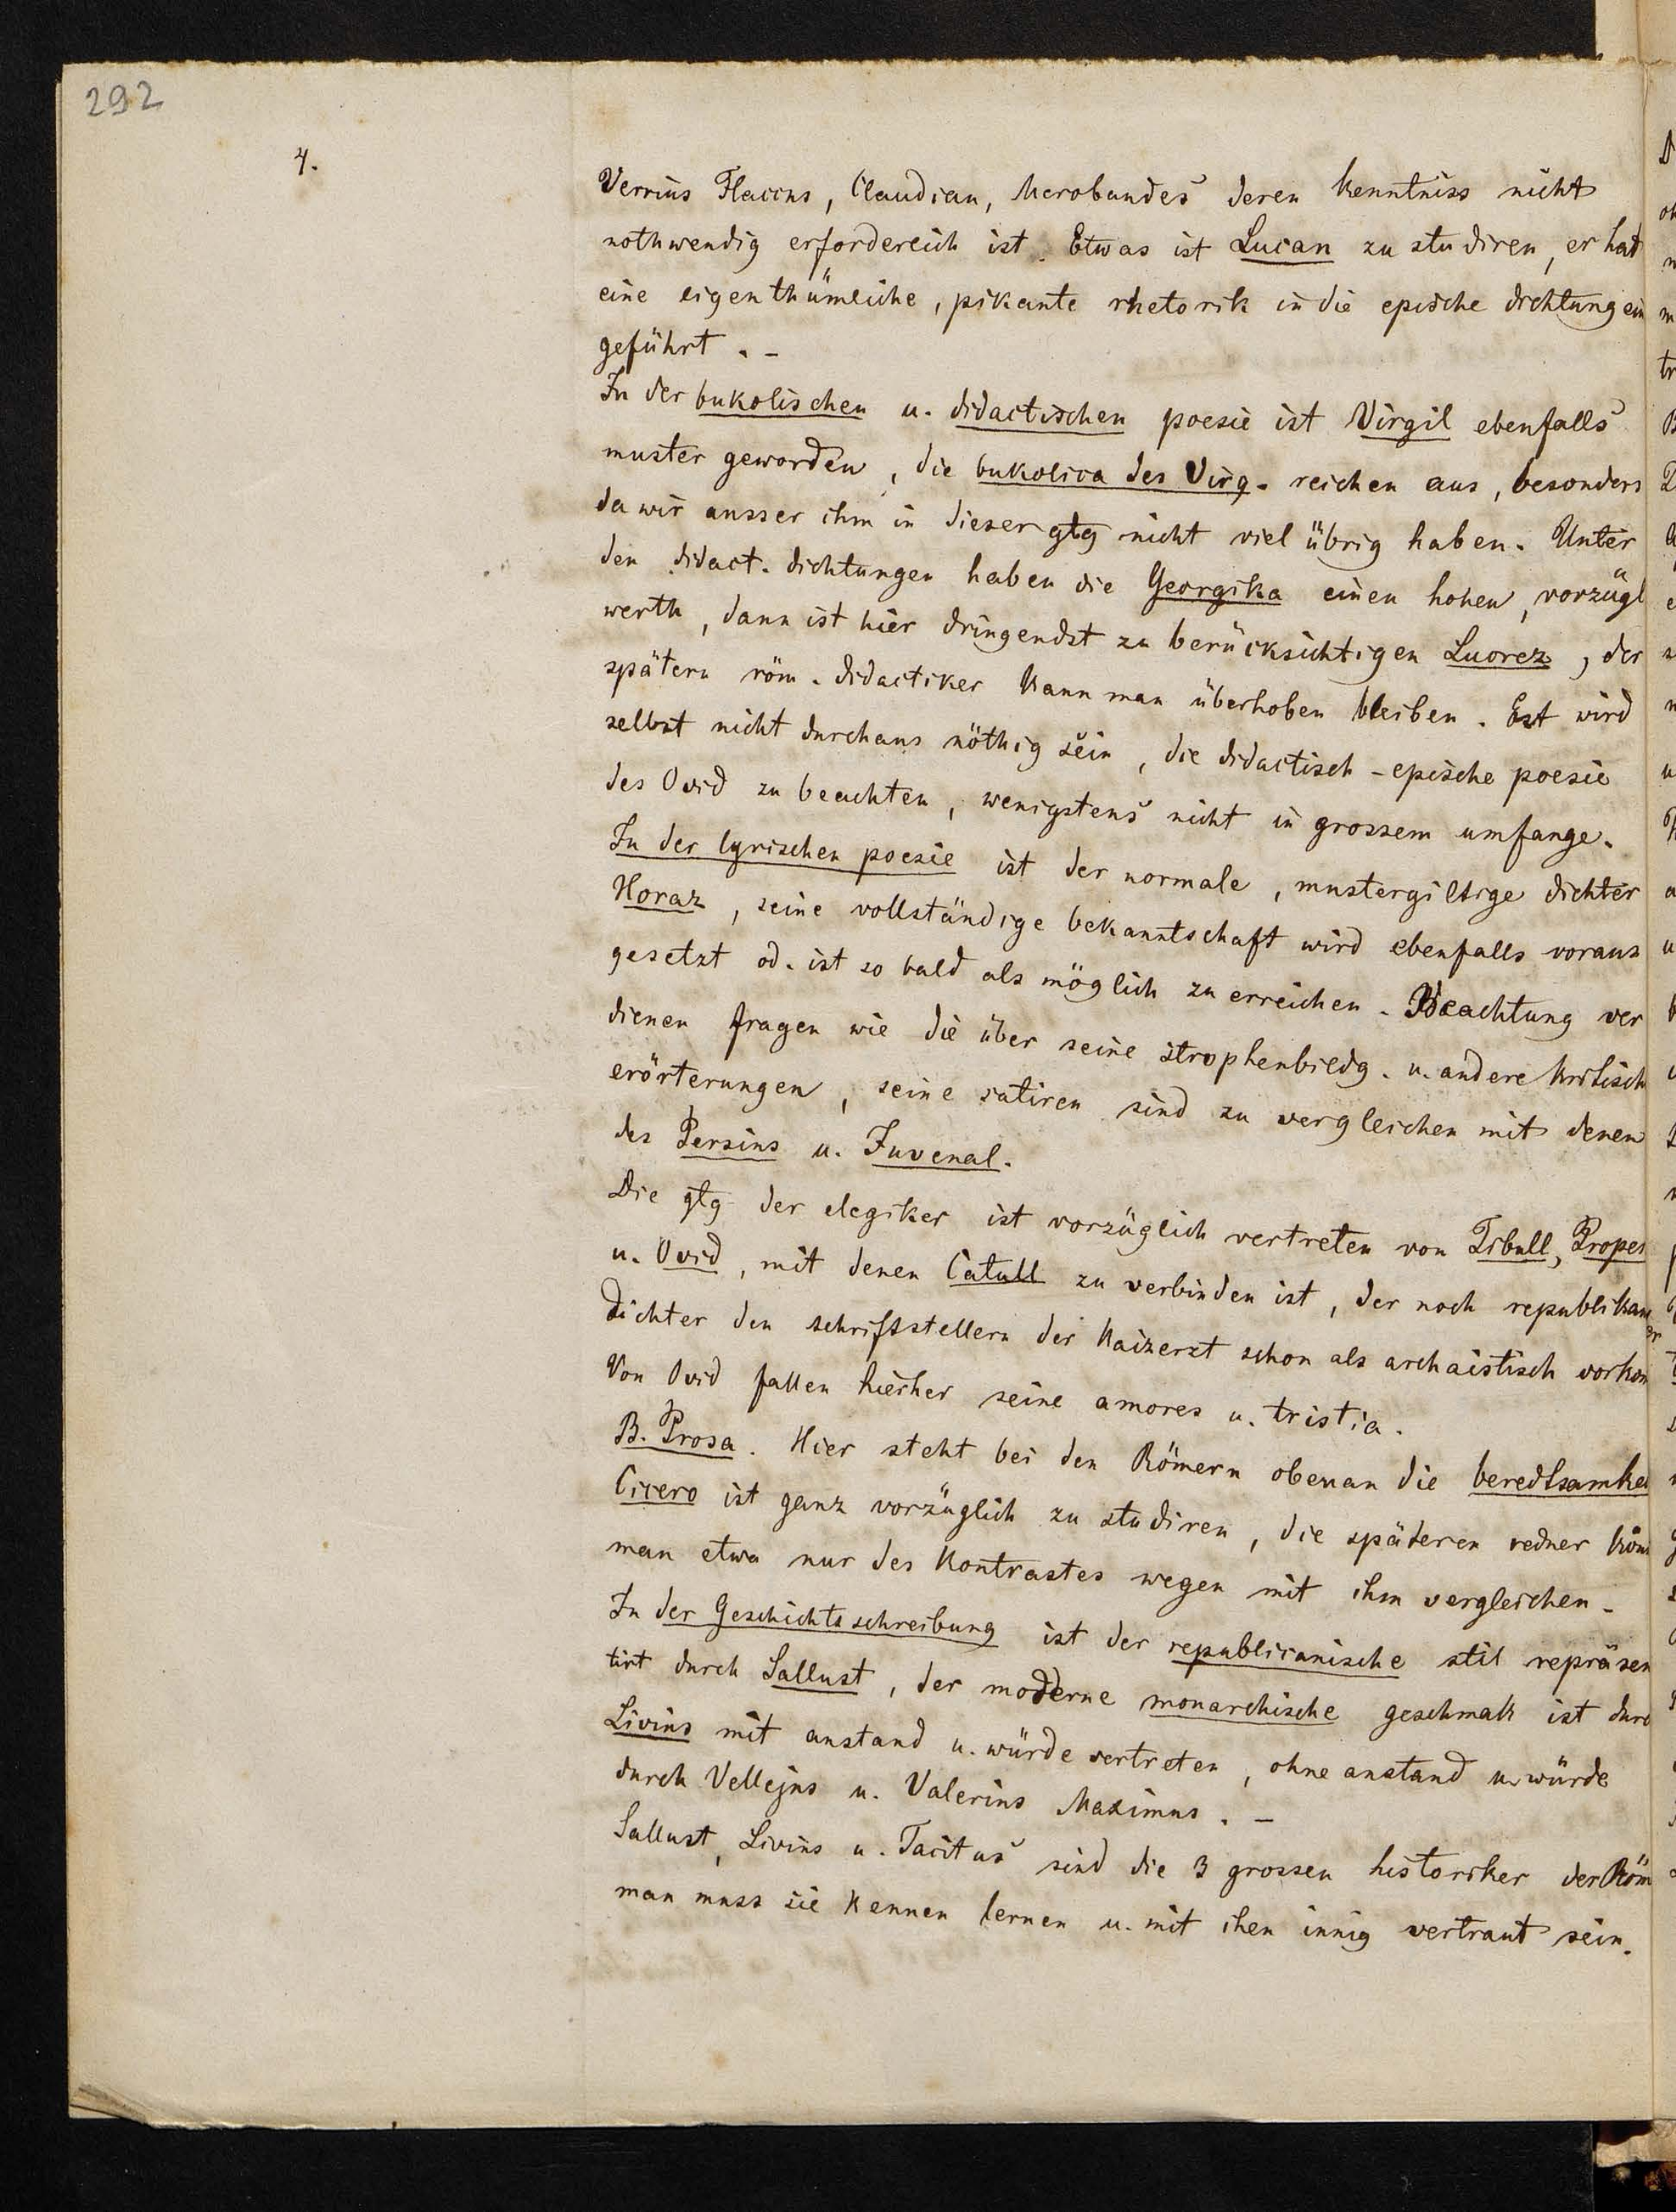 292
4.
Verrius Flaccus, Claudian, Merobandes deren kenntniss nicht
nothwendig erforderlich ist. Etwas ist Lucan zu studiren, er hat
eine eigenthümliche, pikante rhetorik in die epische dichtung ein
geführt. -
In der bukolischen u. didactischen poesie ist Virgil ebenfalls
muster geworden, die bukolica des Virg. reichen aus, besonders
da wir ausser ihm in dieser gtg nicht viel übrig haben. Unter
den didact. dichtungen haben die Georgika einen hohen, vorzügl
werth, dann ist hier dringendst zu berücksichtigen Lucrez, der
spätern röm. didactiker kann man überhoben bleiben. Est wird
selbst nicht durchaus nöthig sein, die didactisch-epische poesie
des Ovid zu beachten, wenigstens nicht in grossem umfange.
In der lyrischen poesie ist der normale, mustergiltige dichter
Horaz, seine vollständige bekanntschaft wird ebenfalls voraus
gesetzt od. ist so bald als möglich zu erreichen. Beachtung ver
dienen fragen wie die über seine strophenbildg. u. andere kritisch
erörterungen, seine satiren sind zu vergleichen mit denen
des Persius u. Juvenal.
Die gtg der elegiker ist vorzüglich vertreten von Tibull, Proper
u. Ovid, mit denen Catull zu verbinden ist, der noch republikan
dichter den schriftstellern der Kaizerzt schon als archaistisch vorkom
Von Ovid fallen hierher seine amores u. tristia.
B. Prosa. Hier steht bei den Römern obenan die beredtsamkei
Cicero ist ganz vorzüglich zu studiren, die späteren redner könn
man etwa nur des Kontrastes wegen mit ihm vergleichen.
In der Geschichtsschreibung ist der republicanische stil repräsen
tirt durch Sallust, der moderne monarchische geschmak ist durc
Livius mit anstand u. würde vertreten, ohne anstand u. würde
durch Vellejus u. Valerius Maximus. -
Sallust, Livius u. Tacitus sind die 3 grossen historiker der Röm
man muss sie kennen lernen u. mit ihen innig vertraut sein.